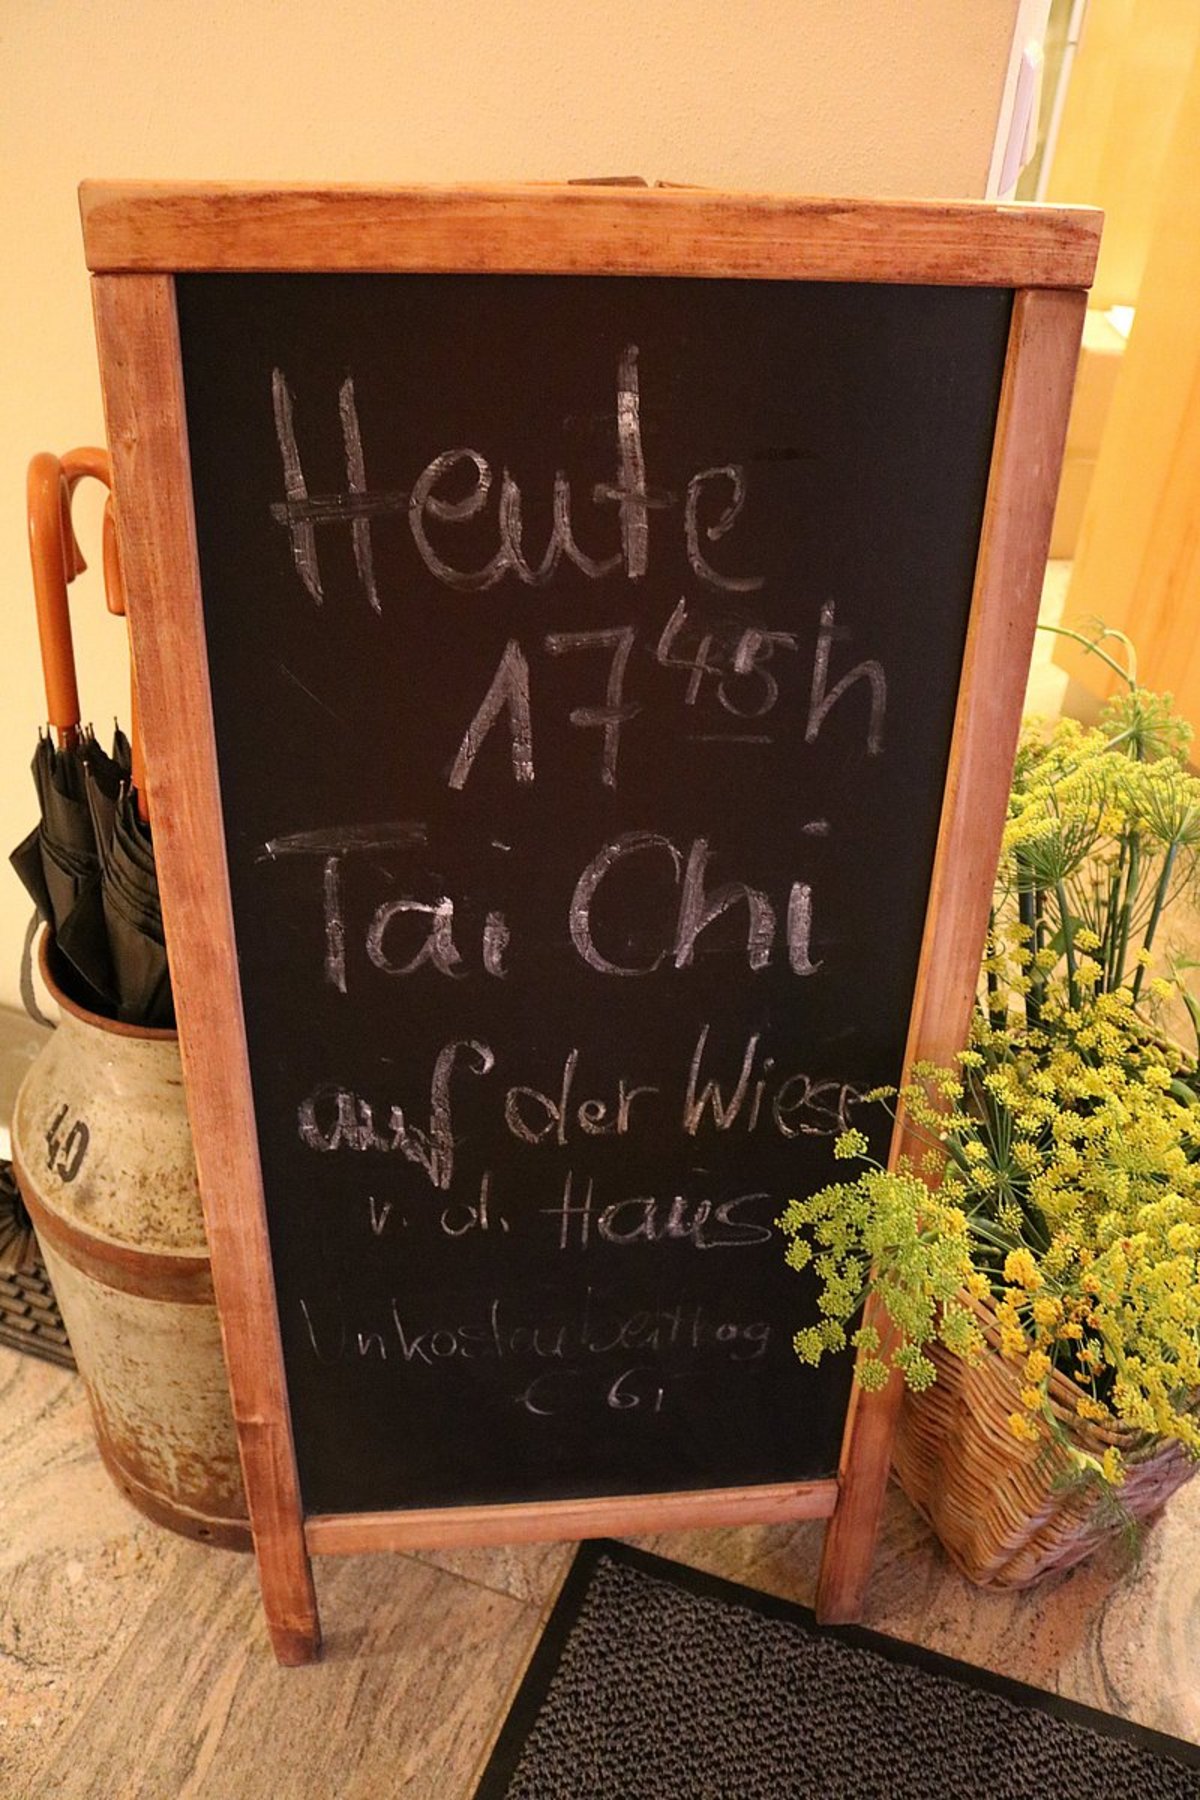 Heute
17 45 h
Tai Chi
auf der Wiese
v. d. Haus
Unkostenbeitrag
€ 6,-
40